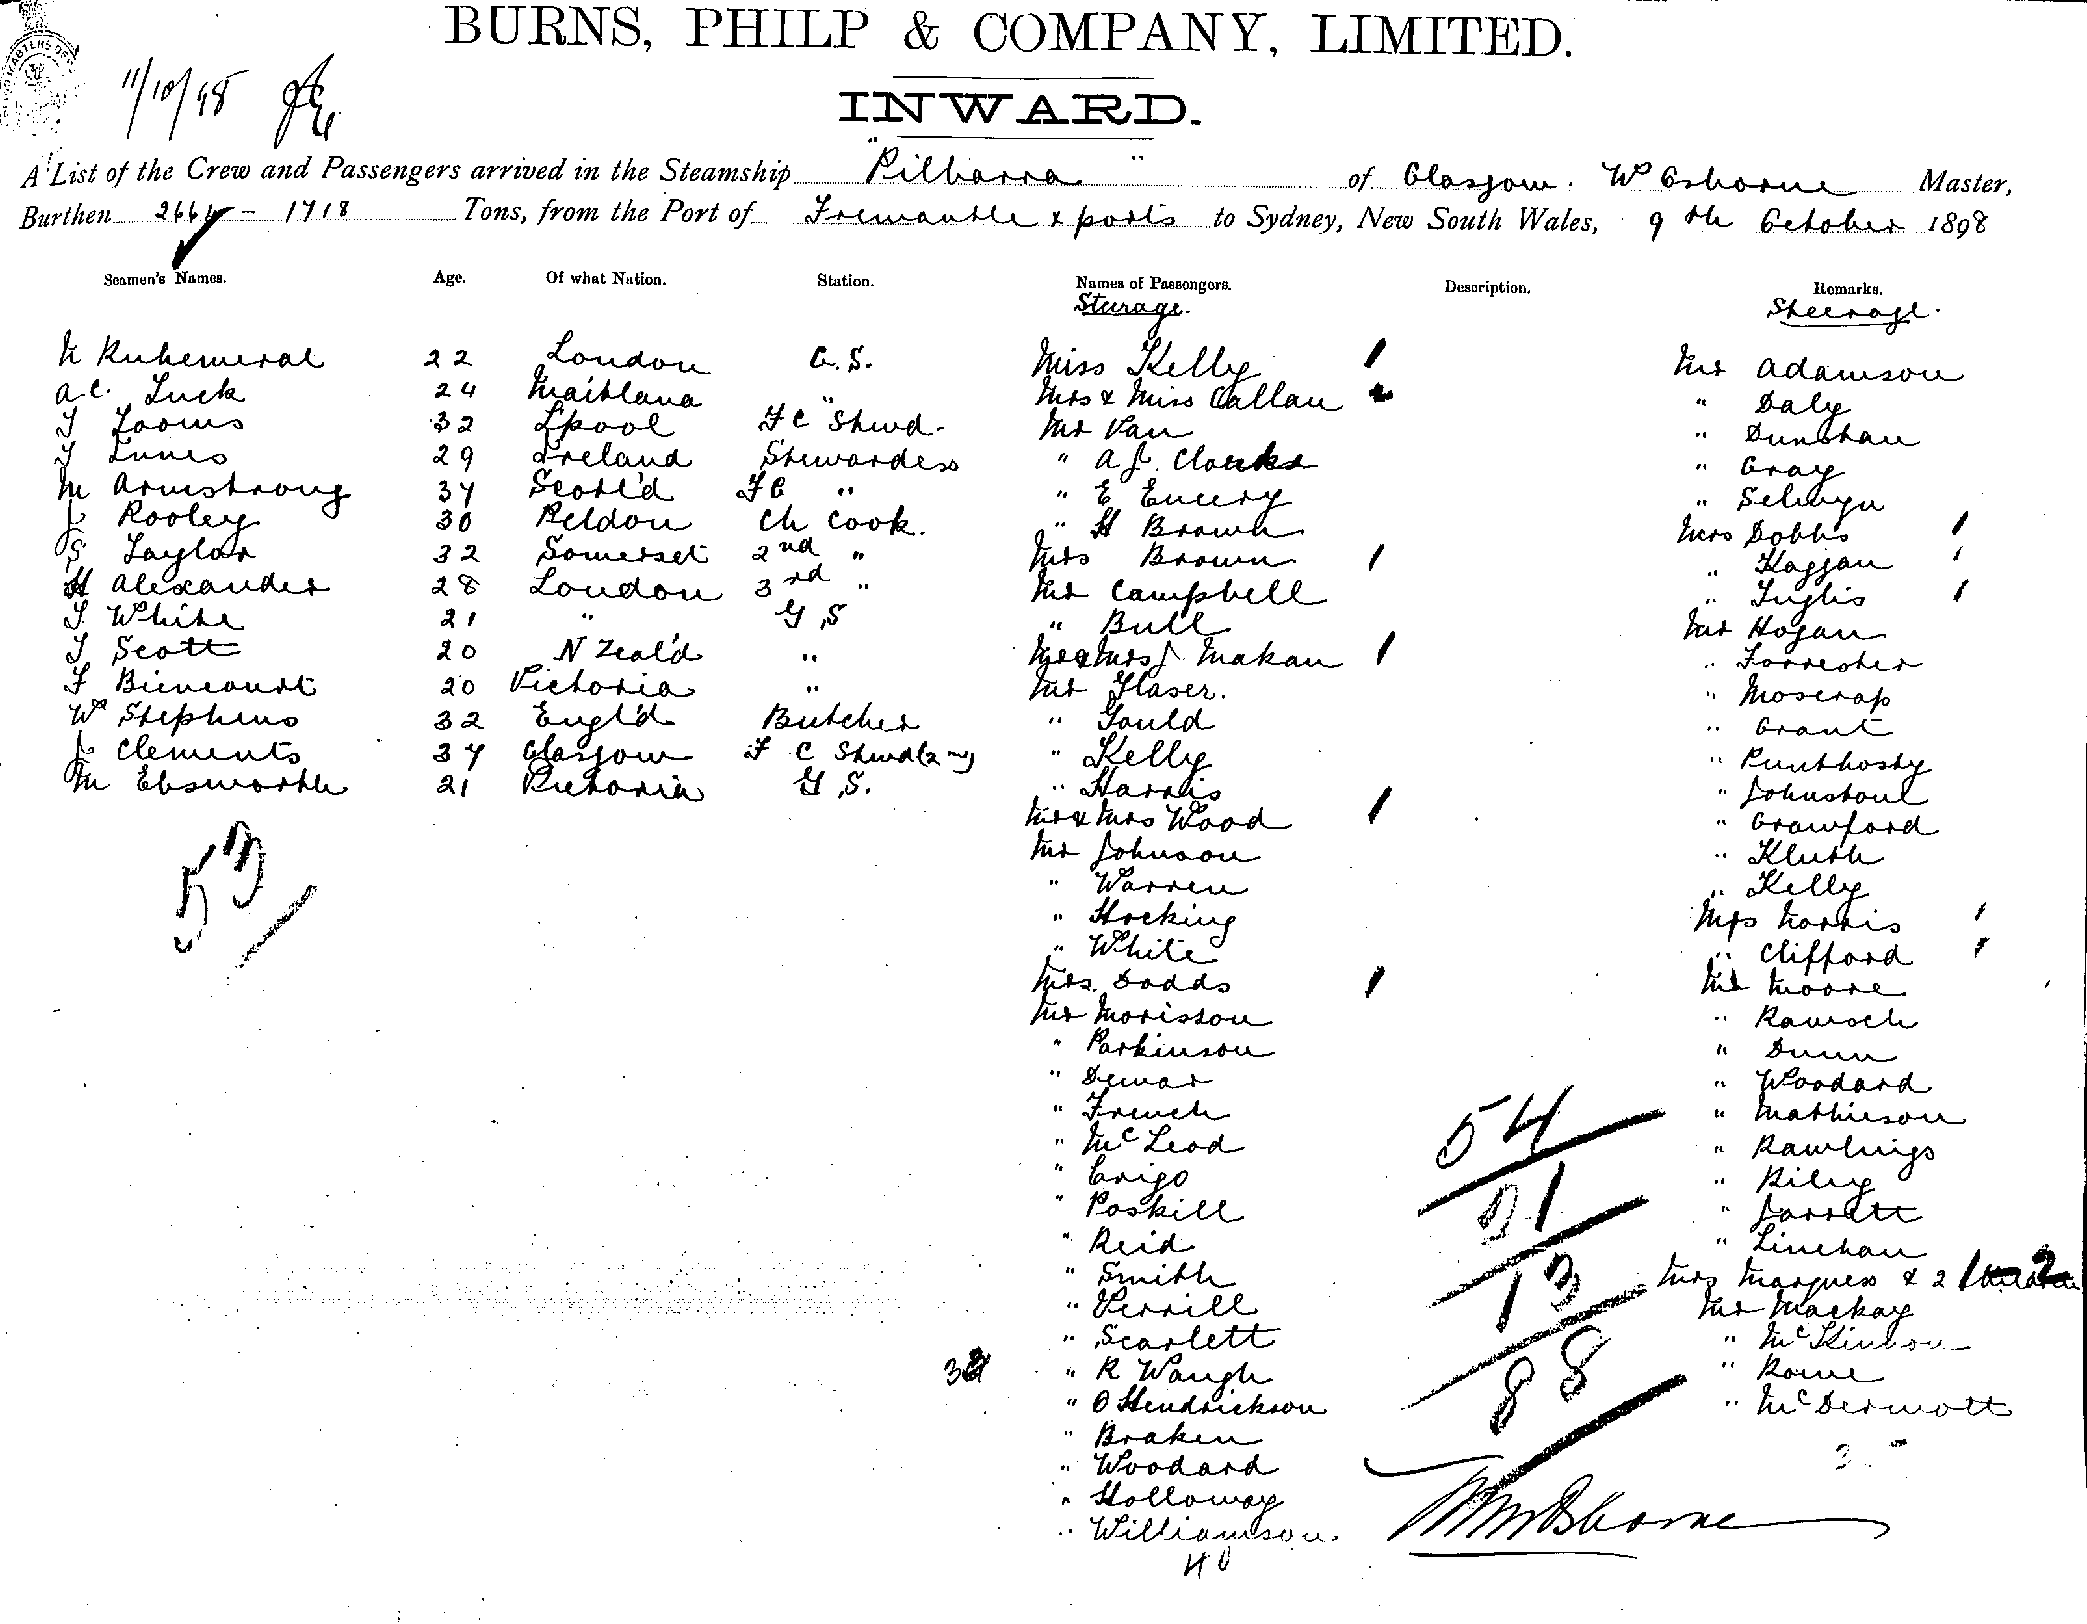 BURNS, PHILP & COMPANY, LIMITED.
11/10/98
INWARD.
A List of the Crew and Passengers arrived in the Steamship "Pilbarra" of Glasgow. Wm Osborne Master,
Burthen 2664 - 1718 Tons, from the Port of Fremantle & ports to Sydney, New South Wales, 9th October 1898
Seamen's Names. Age. Of what Nation. Station. Names of Passengers. Description. Remarks.
Sturage. Steerage.
22 London G.S. Miss Kelly 1 Mr Adamson
A.C. Luck 24 Maitland " Mrs & Miss Callan " Daly
T Looms 32 L'pool F C Stwd. Mr Van " Dunshan
T Innes 29 Ireland Stewardess " A J. Clarke " Gray
M Armstrong 34 Scotl'd F C " " E Emery " Selwyn
J Rooley 30 Peldon Ch Cook. " H Brown Mrs Dobbs 1
S Taylor 32 Somerset 2nd " Mrs Brown 1 " Haggan 1
H Alexander 28 London 3rd " Mr Campbell " Inglis 1
T White 21 " G S " Bull Mr Hogan
T Scott 20 N Zeal'd " Mr & Mrs J Makan 1 " Forrester
F Biencourt 20 Victoria " Mr Glaser. " Moscrop
Wm Stephens 32 Engl'd Butcher " Gould " Grant
J Clements 34 Glasgow F C Stwd " Kelly "
M Ebsworth 21 Victoria G S. " Harris " Johnstone
Mr & Mrs Wood 1 " Crawford
53
Mr Johnson " Kluth
" Warren " Kelly
" Hocking Mrs Norris 1
" White " Clifford 1
Mrs. Dodds 1 Mr Moore
Mr Morisson "
" Parkinson " Dunn
" Dewar " Woodard
" French " Mathieson
" McLeod " Rawlings
54
" Crigo " Riley
" Poskill " Jarrett
21
" Reid " Linehan
" Smith Mrs Marquess & 2 2
13
" Verrill Mr Mackay
" Scarlett " McKinnon
32 " R Waugh " Rowe
88
" O Hendrickson " McDermott
" Braken
" Woodard
" Holloway
" Williamson.
Wm Osborne
40